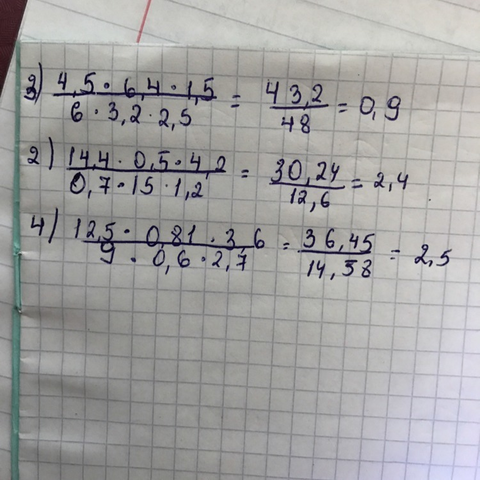 3) 4,5 · 6,4 · 1,5 / 6 · 3,2 · 2,5 = 43,2 / 48 = 0,9
2) 14,4 · 0,5 · 4,2 / 0,7 · 15 · 1,2 = 30,24 / 12,6 = 2,4
4) 12,5 · 0,81 · 3,6 / 9 · 0,6 · 2,7 = 36,45 / 14,38 = 2,5